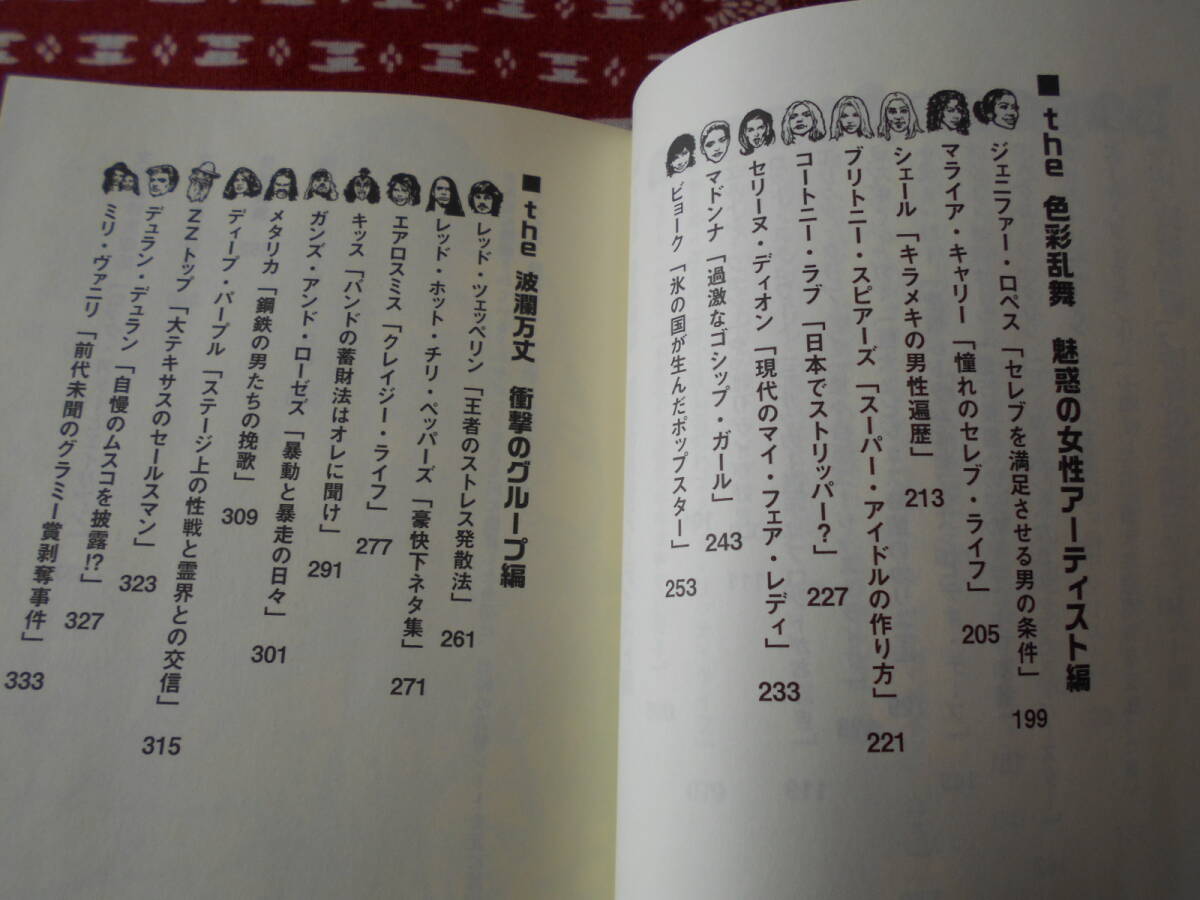 ■the 色彩乱舞 魅惑の女性アーティスト編
ジェニファー・ロペス「セレブを満足させる男の条件」 199
マライア・キャリー「憧れのセレブ・ライフ」 205
シェール「キラメキの男性遍歴」 213
ブリトニー・スピアーズ「スーパー・アイドルの作り方」 221
コートニー・ラブ「日本でストリッパー?」 227
セリーヌ・ディオン「現代のマイ・フェア・レディ」 233
マドンナ「過激なゴシップ・ガール」 243
ビョーク「氷の国が生んだポップスター」 253
■the 波瀾万丈 衝撃のグループ編
レッド・ツェッペリン「王者のストレス発散法」 261
レッド・ホット・チリ・ペッパーズ「豪快下ネタ集」 271
エアロスミス「クレイジー・ライフ」 277
キッス「バンドの蓄財法はオレに聞け」 291
ガンズ・アンド・ローゼズ「暴動と暴走の日々」 301
メタリカ「鋼鉄の男たちの挽歌」 309
ディープ・パープル「ステージ上の性戦と霊界との交信」 315
ZZトップ「大テキサスのセールスマン」 323
デュラン・デュラン「自慢のムスコを披露!?」 327
ミリ・ヴァニリ「前代未聞のグラミー賞剥奪事件」 333